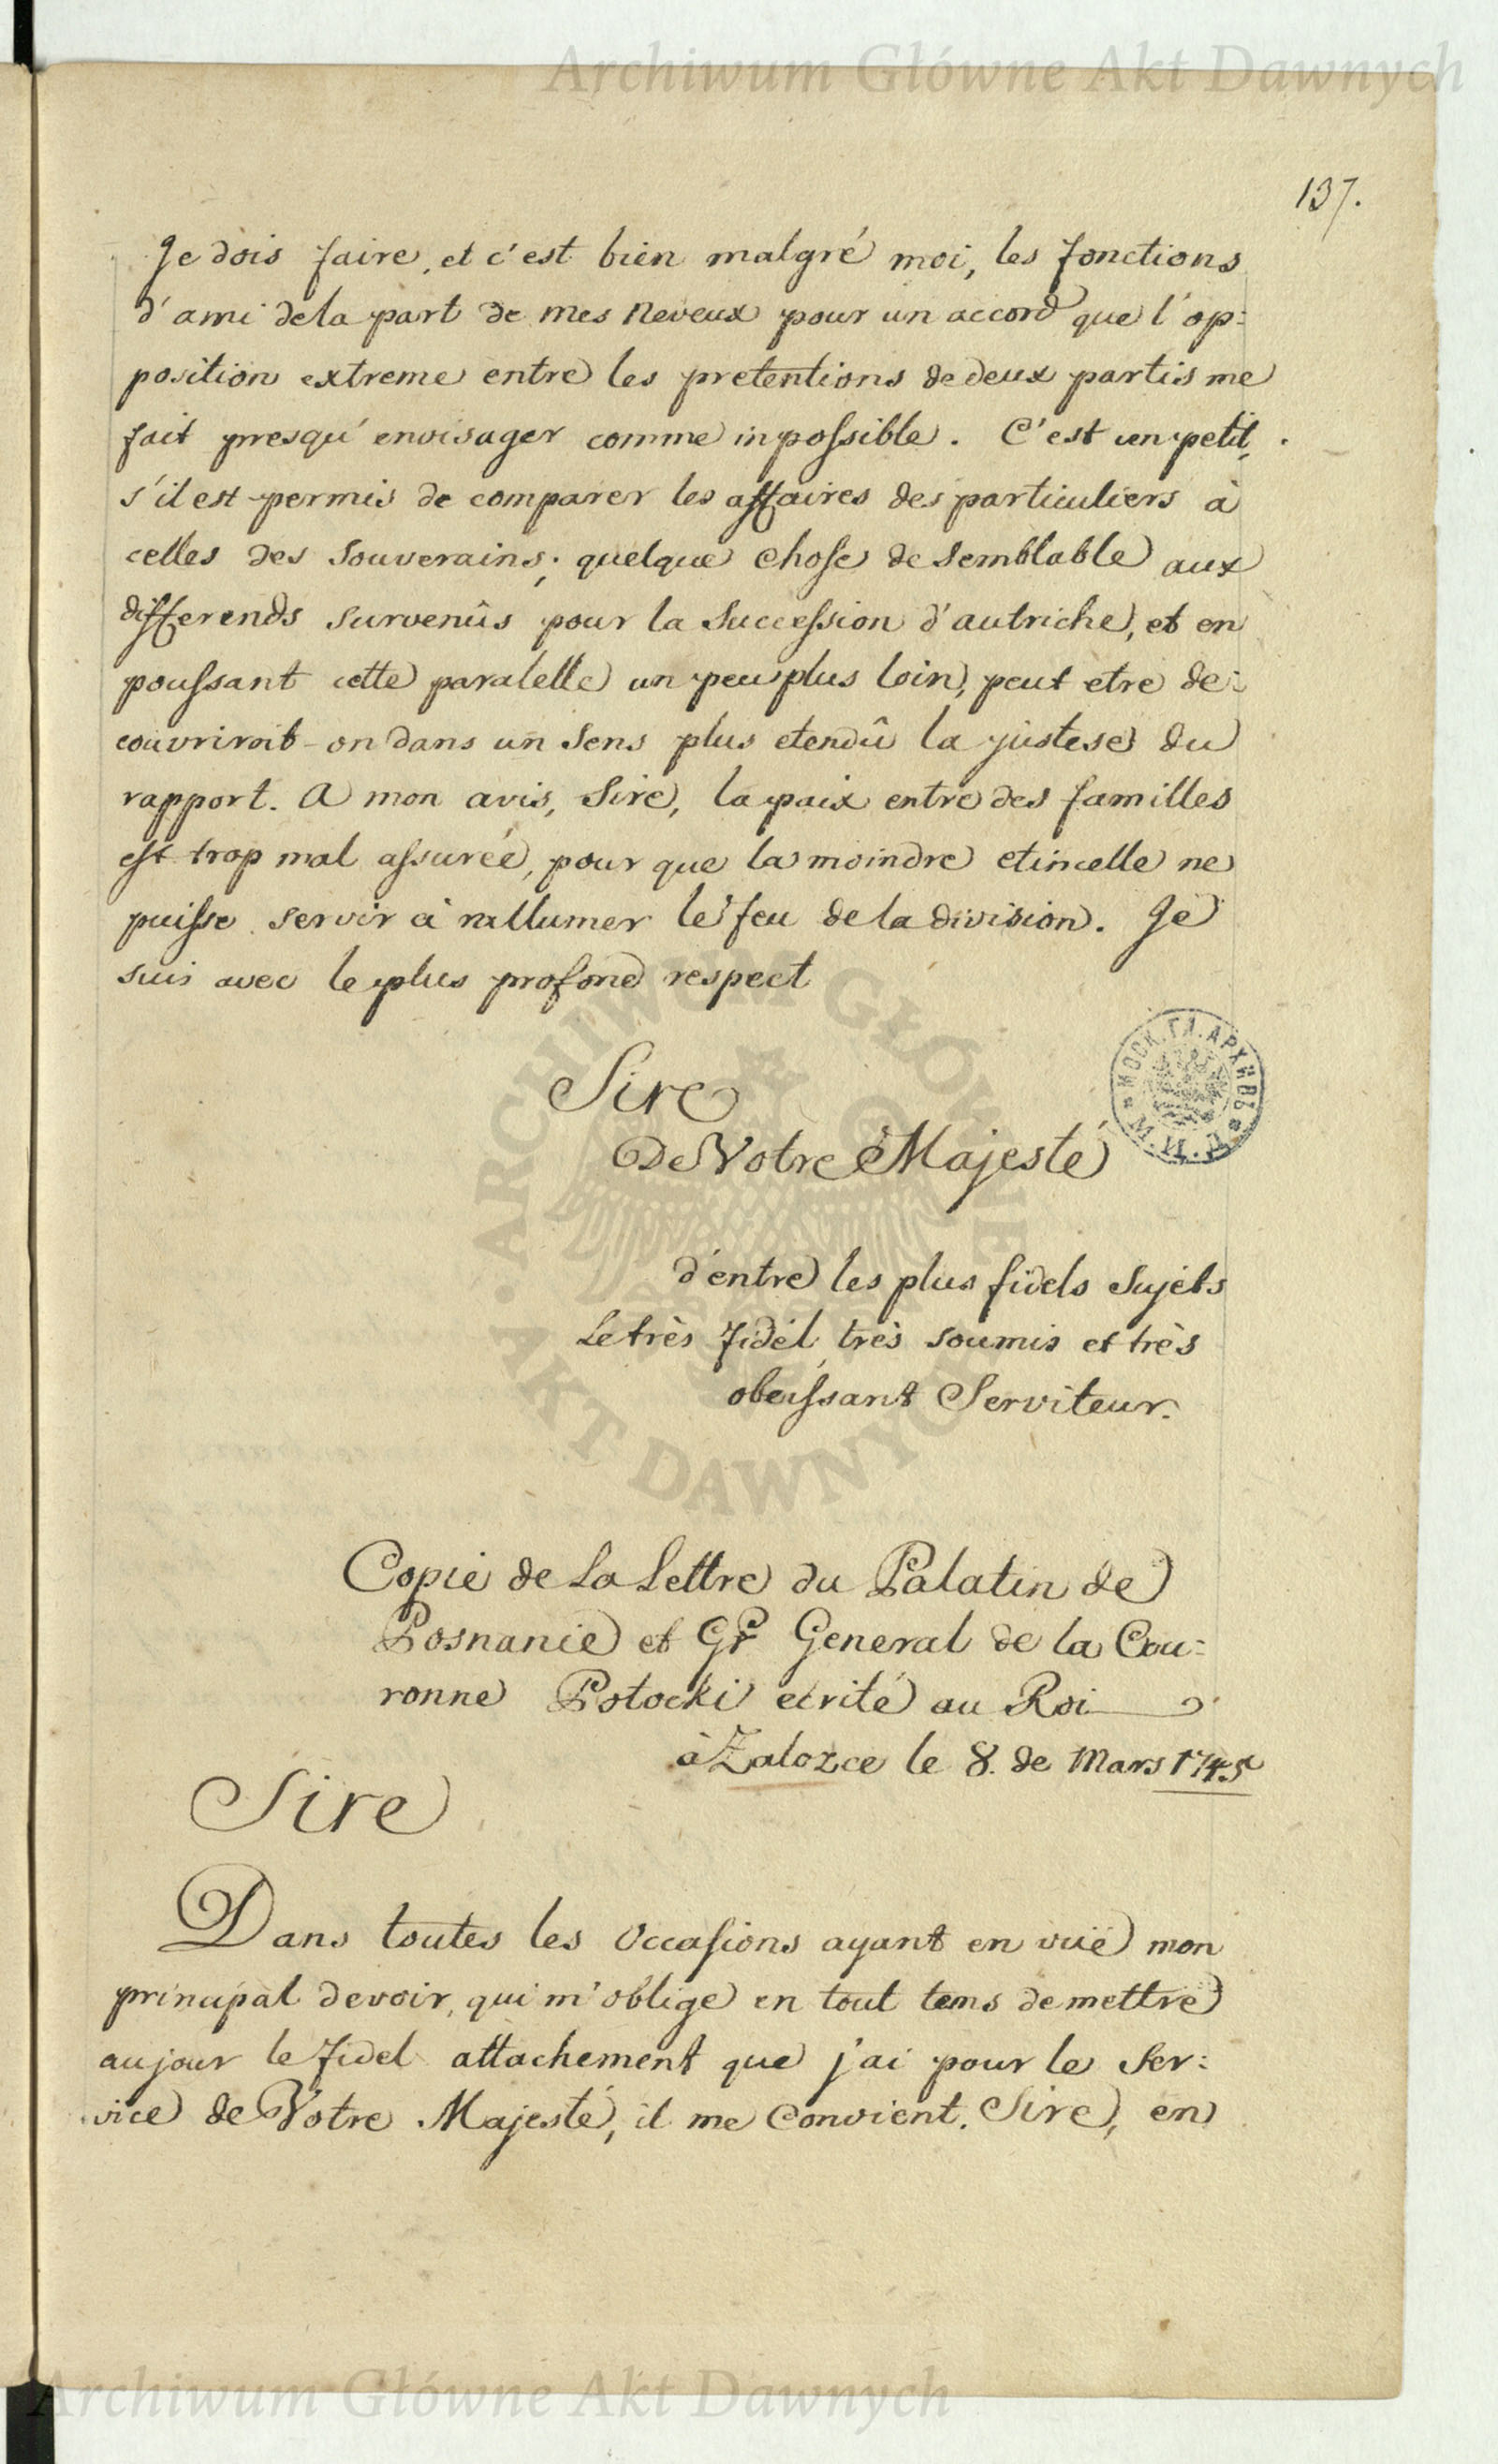 Archiwum Główne Akt Dawnych
137.
Je dois faire, et c'est bien malgré moi, les fonctions
d'ami dela part de mes Neveux pour un accord que l'op:
position extreme entre les pretentions de deux partis me
fait presqu'envisager comme inpossible. C'est un petit,
s'il est permis de comparer les affaires des particuliers à
celles des Souverains; quelque chose de semblable aux
differends survenûs pour la Succession d'autriche, et en
poussant cette paralelle un peu plus loin, peut etre de:
couvriroit-on dans un Sens plus etendû la justese du
rapport. A mon avis, Sire, la paix entre des familles
est trop mal assurée, pour que la moindre etincelle ne
puisse servir à rallumer le feu de la division. Je
suis avec le plus profond respect
Sire
De Votre Majesté
d'entre les plus fidels Sujets
Le très fidel, très soumis et très
obeissant Serviteur.
МОСК. ГЛ. АРХИВЪ М. И. Д.
ARCHIWUM GŁÓWNE AKT DAWNYCH
Copie de La Lettre du Palatin de
Posnanie et Gr General de la Cou:
ronne Potocki ecrite au Roi
à Zalozce le 8. de Mars 1745
Sire
Dans toutes les Occasions ayant en vuë mon
principal devoir, qui m'oblige en tout tems de mettre
au jour le fidel attachement que j'ai pour le Ser:
vice de Votre Majesté, il me convient, Sire, en
Archiwum Główne Akt Dawnych